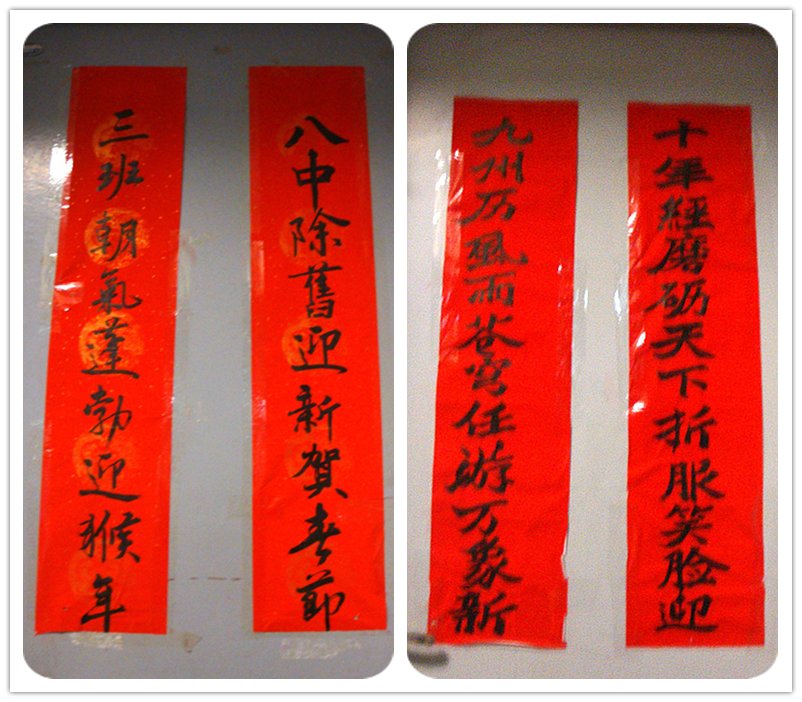 八中除舊迎新賀春節
三班朝氣蓬勃迎猴年
十年經磨砺天下折服笑脸迎
九州历風雨苍穹任游万象新